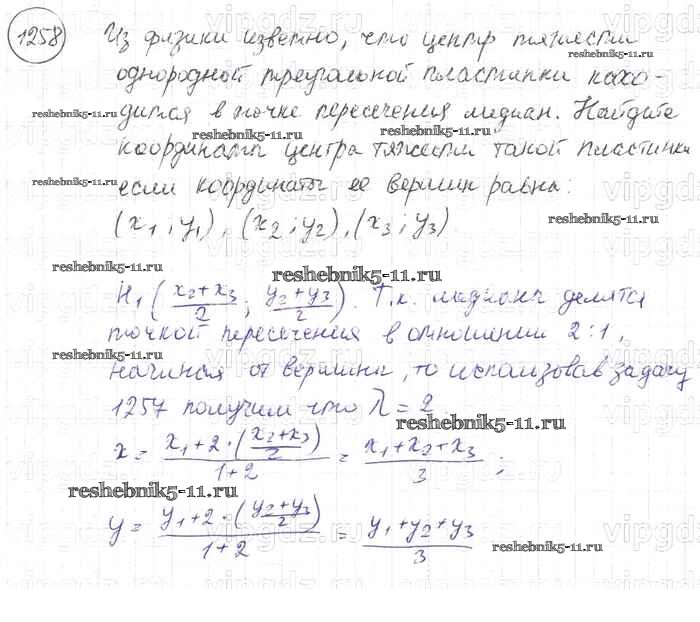 1258 Из физики известно, что центр тяжести
однородной треугольной пластинки нахо-
дится в точке пересечения медиан. Найдите
координаты центра тяжести такой пластинки
если координаты ее вершин равны:
(x₁; y₁), (x₂; y₂), (x₃; y₃)
H₁ ((x₂+x₃)/2; (y₂+y₃)/2). Т.к. медианы делятся
точкой пересечения в отношении 2:1,
начиная от вершины, то использовав задачу
1257 получим что λ = 2
x = (x₁+2·((x₂+x₃)/2))/(1+2) = (x₁+x₂+x₃)/3 ;
y = (y₁+2·((y₂+y₃)/2))/(1+2) = (y₁+y₂+y₃)/3
reshebnik5-11.ru
reshebnik5-11.ru
reshebnik5-11.ru
reshebnik5-11.ru
reshebnik5-11.ru
reshebnik5-11.ru
reshebnik5-11.ru
reshebnik5-11.ru
reshebnik5-11.ru
reshebnik5-11.ru
reshebnik5-11.ru